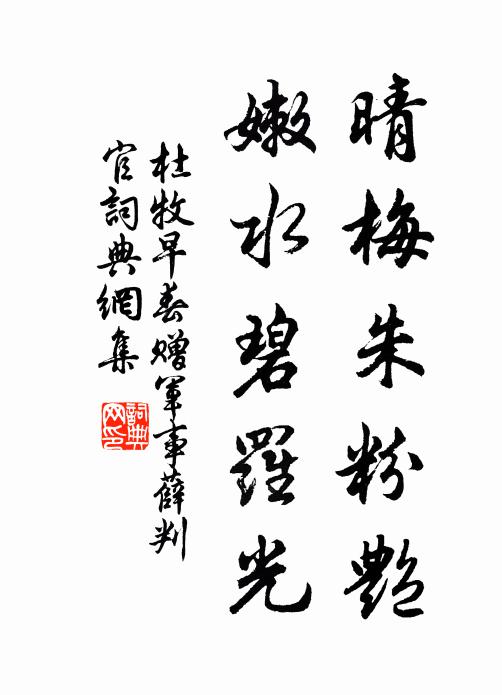 晴梅朱粉艷
嫩水碧羅光
杜牧早春贈軍事薛判
官詞典網集
詞典
网印